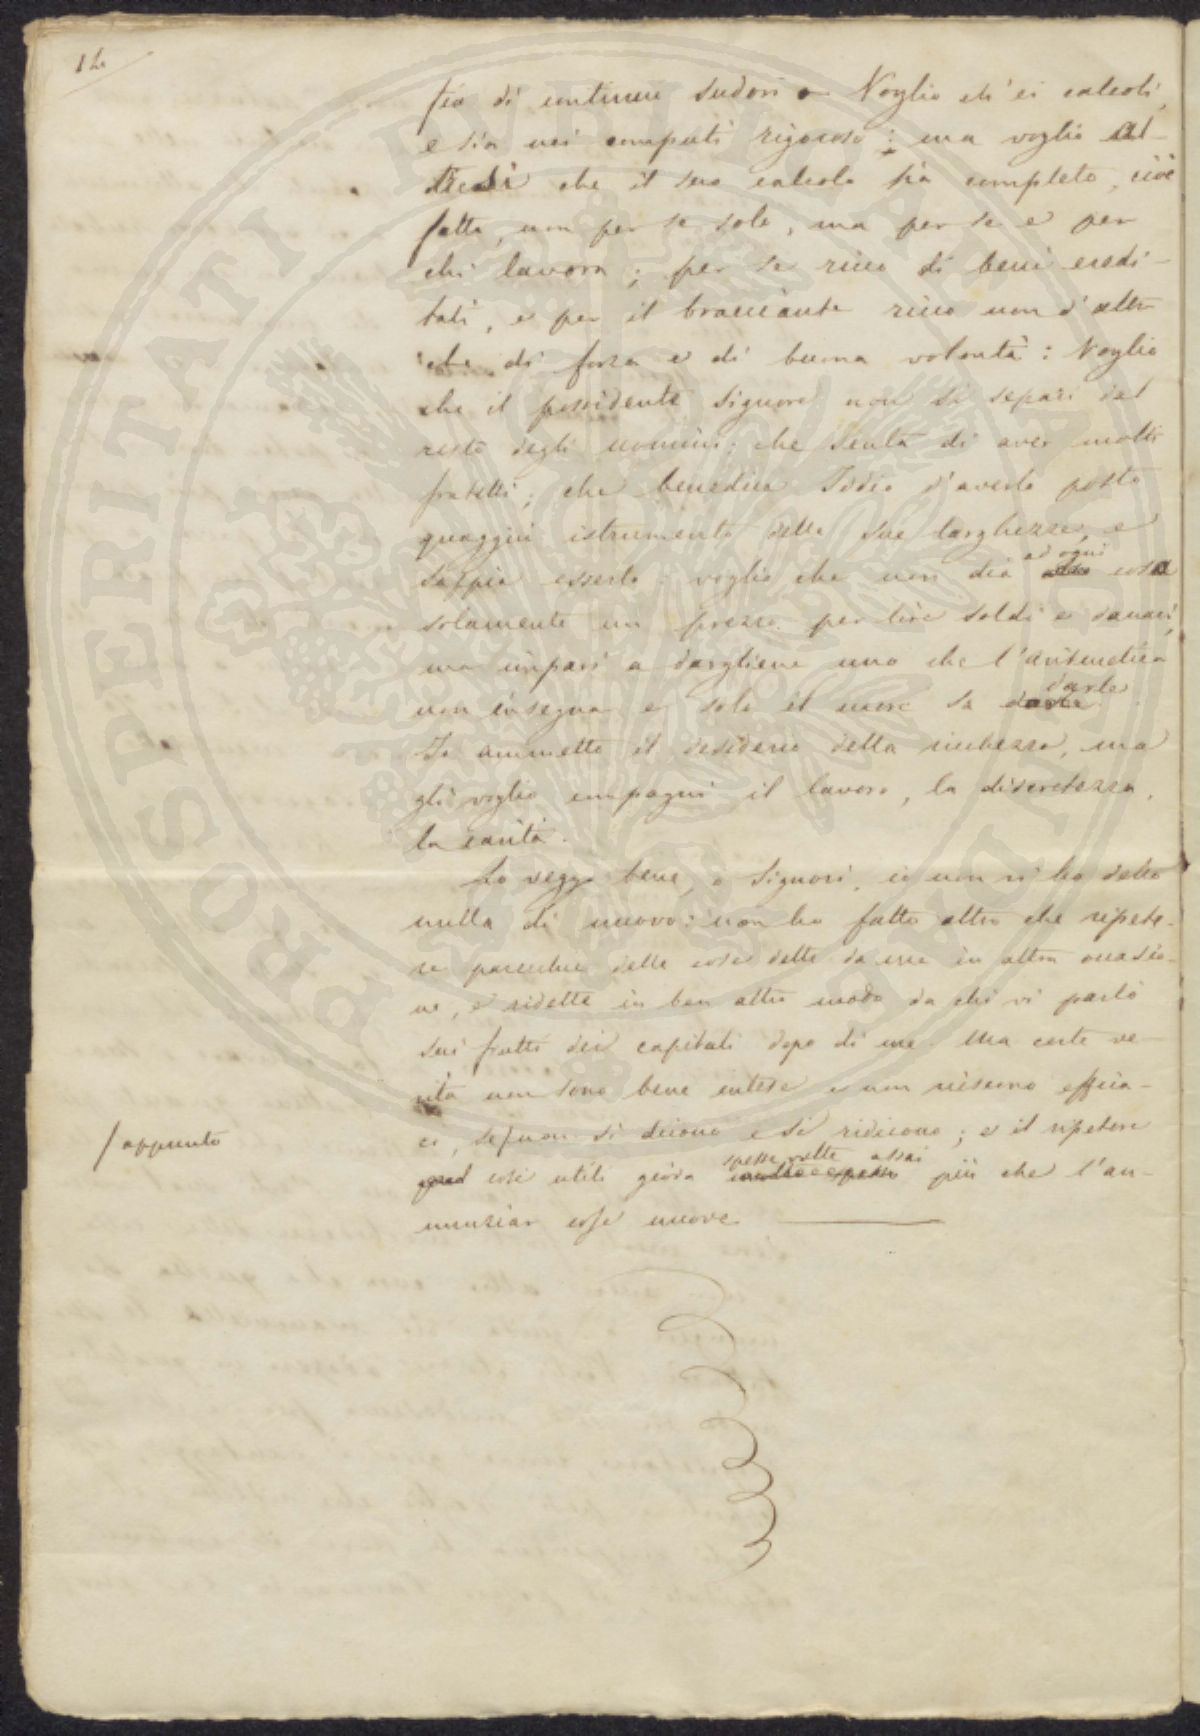 12
fia di continui sudori. Voglio ch'ei calcoli,
e sia nei computi rigoroso; ma voglio al-
tresì che il suo calcolo sia completo, cioè
fatto, non per se solo, ma per se e per
chi lavora; per se ricco di beni eredi-
tati, e per il bracciante ricco non d'altro
che di forza e di buona volontà: Voglio
che il possidente signore non si separi dal
resto degli uomini; che senta di aver molti
fratelli; che benedica Iddio d'averlo posto
quaggiù istrumento delle sue larghezze, e
sappia esserlo: voglio che non dia ad ogni cosa
solamente un prezzo per lire soldi e danari,
ma impari a dargliene uno che l'aritmetica
non insegna e solo il cuore sa darle.
Io ammetto il desiderio della ricchezza, ma
gli voglio compagni il lavoro, la discretezza,
la carità.
Lo veggo bene, o Signori, io non vi ho detto
nulla di nuovo: non ho fatto altro che ripete-
re parecchie delle cose dette da me in altra occasio-
ne, e ridette in ben altro modo da chi vi parlò
sui frutti dei capitali dopo di me. Ma certe ve-
rità non sono bene intese e non riescono effica-
ci, se non si dicono e si ridicono; e il ripetere
/ appunto
cose utili giova spesse volte assai più che l'an-
nunziar cose nuove.
PROSPERITATI PUBLICAE AUGENDAE